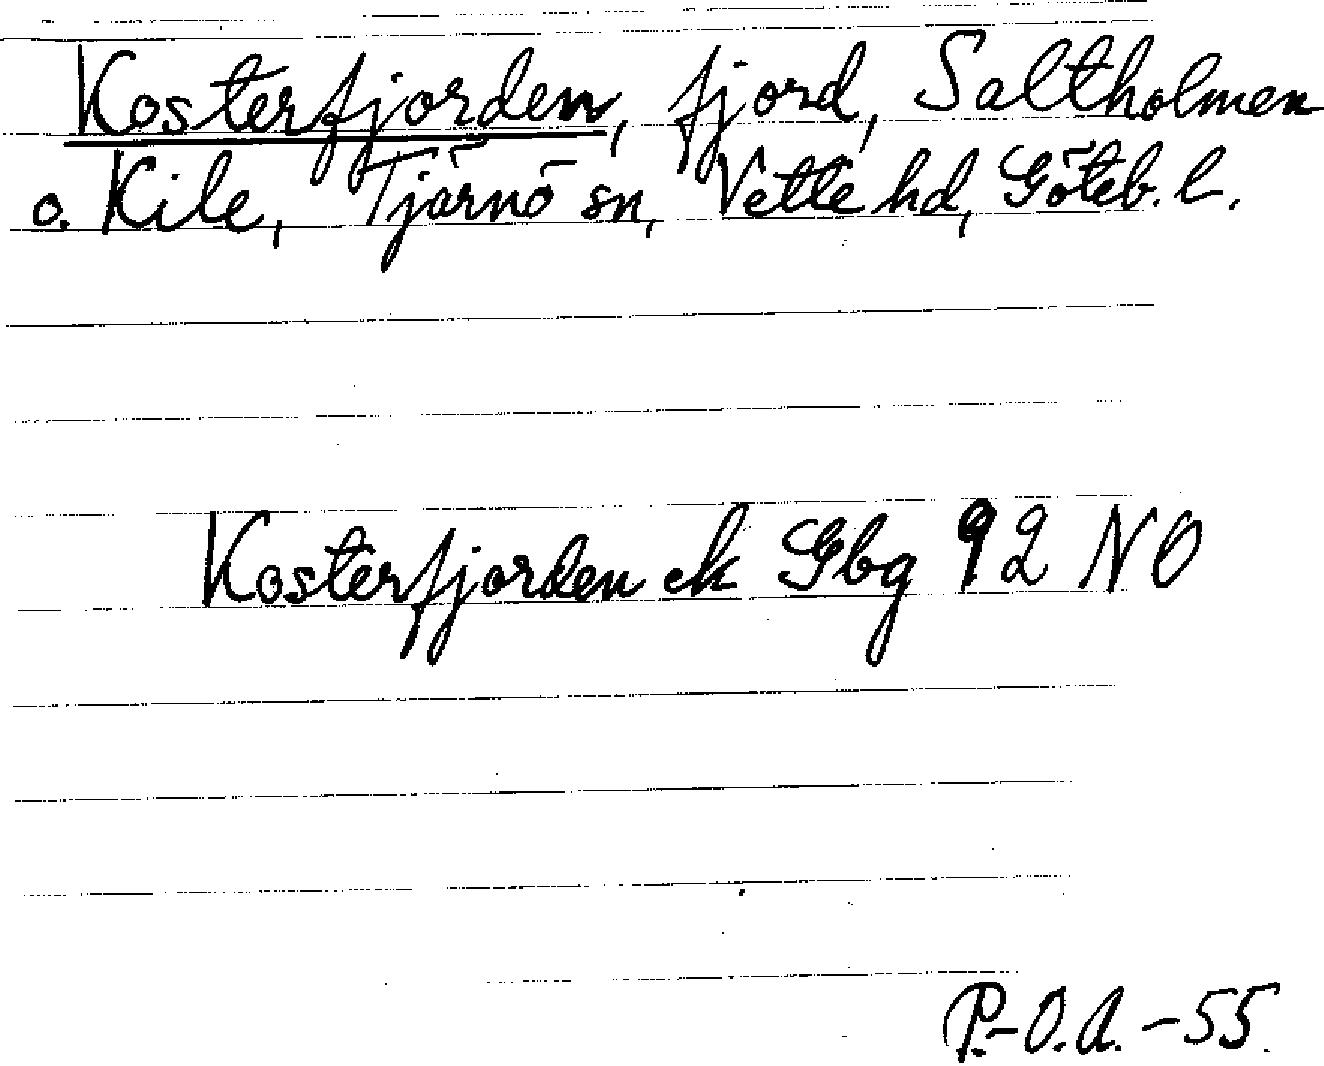 Kosterfjorden, fjord, Saltholmen
o. Kile, Tjärnö sn, Vette hd, Göteb. l.
Kosterfjorden ek Gbg 92 NO
P.-O.A. -55.